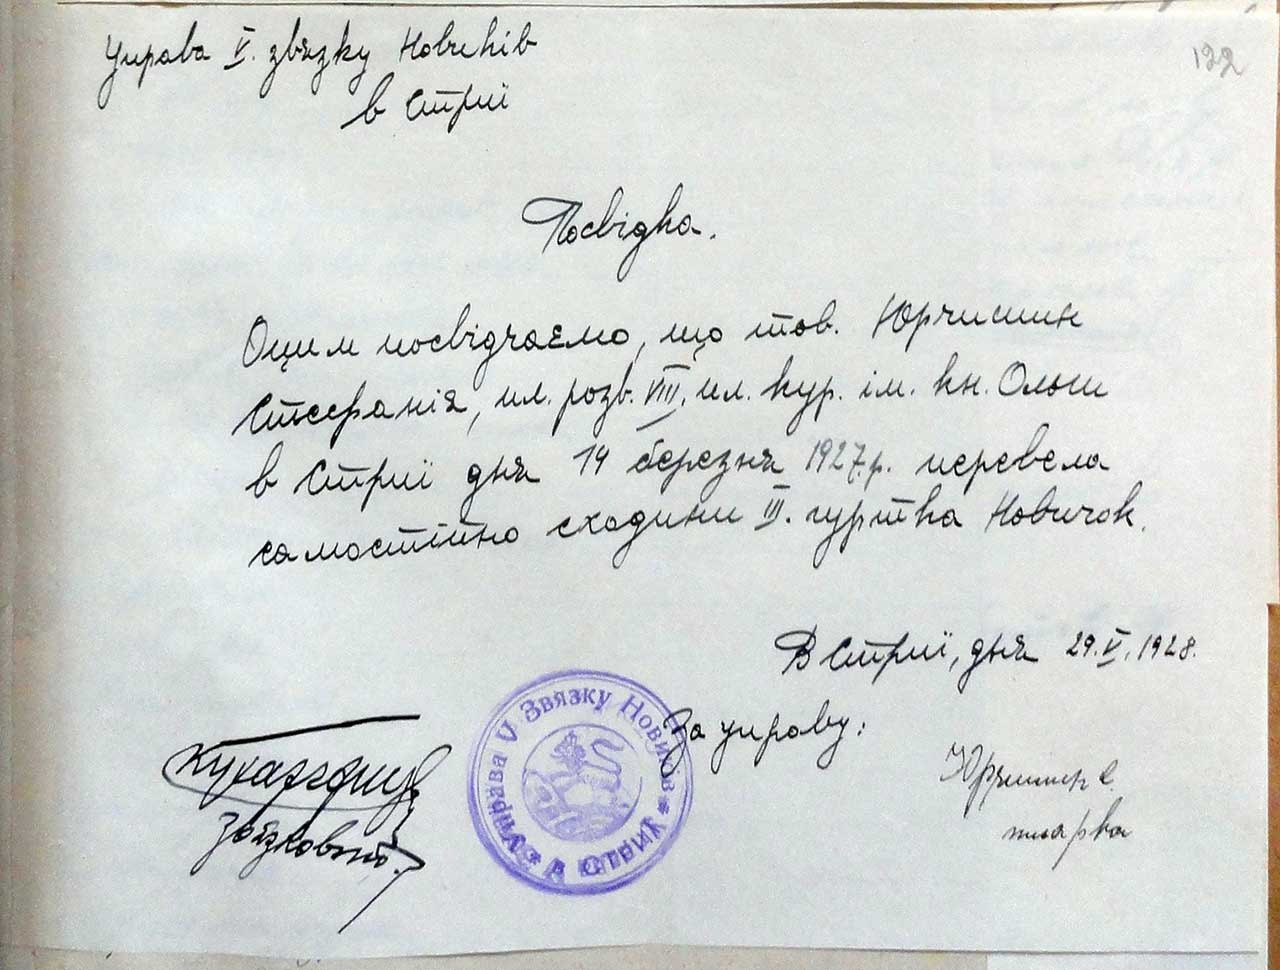 122
Управа V. звязку Новиків
в Стрию
Посвідка.
Оцим посвідчаємо, що тов. Юрчишин
Стефанія, пл. розв. VIII. пл. кур. ім. кн. Ольги
в Стрию дня 14 березня 1927.р. перевела
самостійно сходини III. гуртка Новичок.
В Стрию, дня 29.V.1928.
За управу:
Управа V Звязку Новиків
* в Стрию *
звязковий
Юрчишин С.
писарка